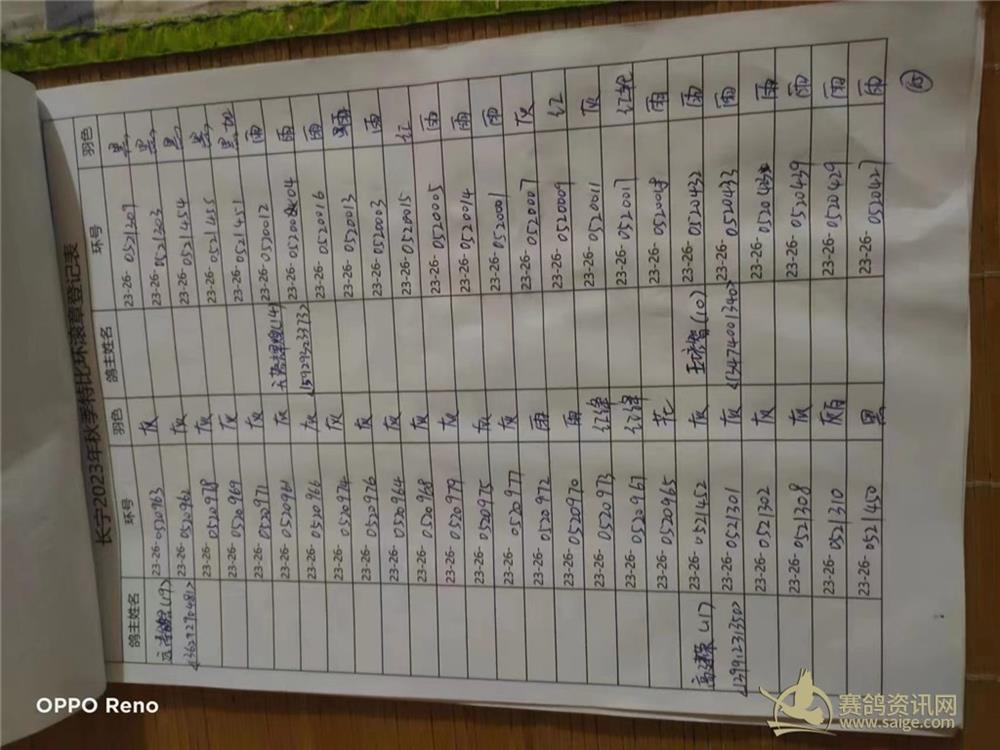 长宁2023年秋季特比环滚章登记表
鸽主姓名 环号 羽色 鸽主姓名 环号 羽色
23-26-0520963 灰 23-26-0521309 黑
(19) 23-26-0520962 灰 23-26-0521303 黑
<13629270481> 23-26-0520978 灰 23-26-0521454 黑
23-26-0520969 灰 23-26-0521455 黑
23-26-0520971 灰 23-26-0521451 黑
23-26-0520961 灰 (14) 23-26-0520012 雨
23-26-0520966 灰 <15929323373> 23-26-0520004 雨
23-26-0520974 灰 23-26-0520016 雨
23-26-0520976 灰 23-26-0520013
23-26-0520964 灰 23-26-0520003 雨
23-26-0520968 灰 23-26-0520015 红
23-26-0520979 灰 23-26-0520005 雨
23-26-0520975 灰 23-26-0520014 雨
23-26-0520977 灰 23-26-0520001 雨
23-26-0520972 雨 23-26-0520007 灰
23-26-0520970 雨 23-26-0520009 红
23-26-0520973 红绛 23-26-0520011 灰
23-26-0520967 红绛 23-26-0520017 红轮
23-26-0520965 花 23-26-0520018 雨
(11) 23-26-0521452 灰 (10) 23-26-0520432 雨
<13991231350> 23-26-0521301 灰 <13474001340> 23-26-0520433 雨
23-26-0521302 灰 23-26- 雨
23-26-0521308 灰 23-26-0520439 雨
23-26-0521310 灰白 23-26-0520429 雨
23-26-0521450 黑 23-26-0520427 雨
OPPO Reno
赛鸽资讯网
www.saige.com